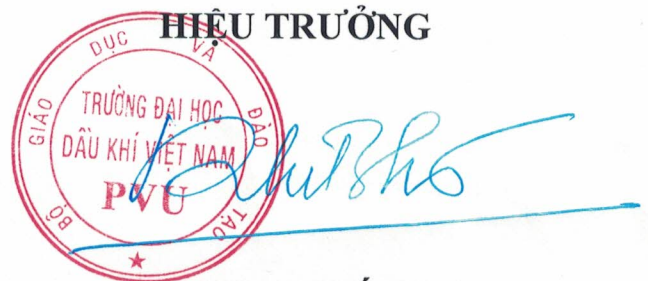 HIỆU TRƯỞNG
BỘ GIÁO DỤC VÀ ĐÀO TẠO
TRƯỜNG ĐẠI HỌC
DẦU KHÍ VIỆT NAM
PVU